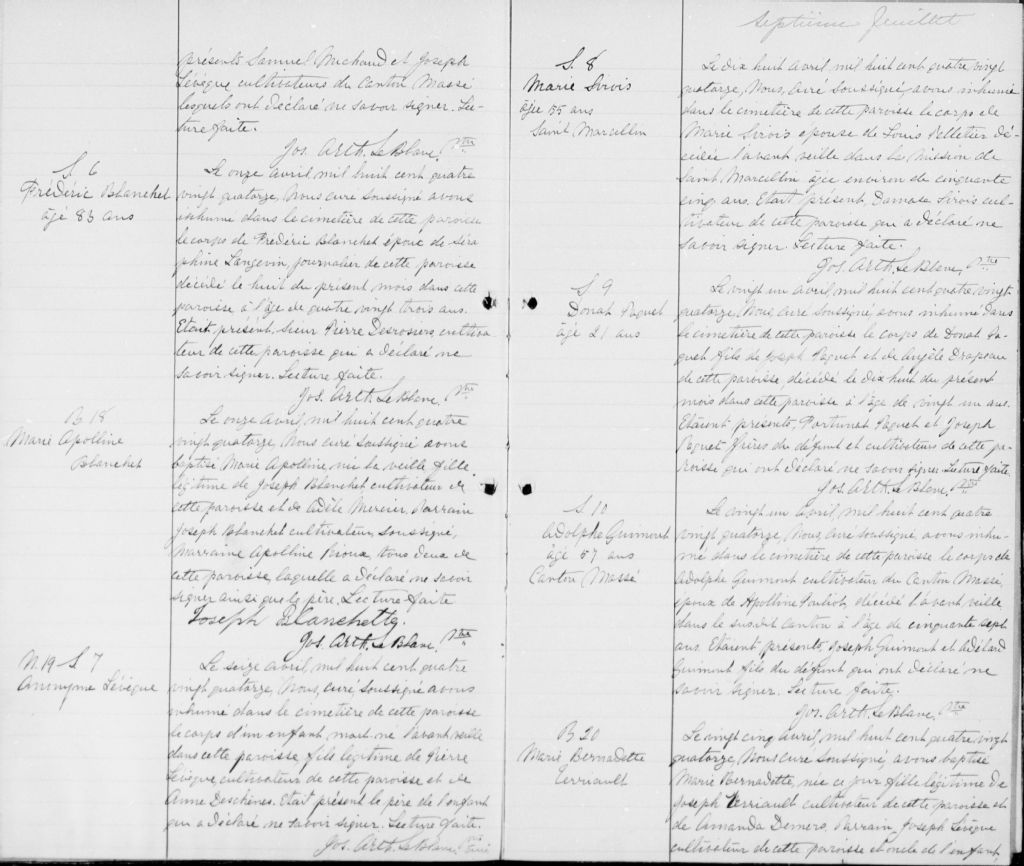 présents Samuel Michaud et Joseph
Lévêque cultivateurs du Canton Massé
lesquels ont déclaré ne savoir signer. Lec-
ture faite.
Jos. Arth. LeBlanc, Ptre
S. 6
Frédéric Blanchet
âgé 83 ans
Le onze avril mil huit cent quatre
vingt quatorze, Nous curé soussigné avons
inhumé dans le cimetière de cette paroisse
le corps de Frédéric Blanchet époux de Séra
phine Langevin, journalier de cette paroisse
décédé le huit du présent mois dans cette
paroisse à l'âge de quatre vingt trois ans.
Etait présent, Sieur Pierre Desrosiers, cultiva-
teur de cette paroisse qui a déclaré ne
savoir signer. Lecture faite.
Jos. Arth. LeBlanc, Ptre
B 18
Marie Apolline
Blanchet
Le onze avril, mil huit cent quatre
vingt quatorze, Nous curé soussigné avons
baptisé Marie Apolline née la veille fille
légitime de Joseph Blanchet cultivateur de
cette paroisse et de Adèle Mercier. Parrain
Joseph Blanchet cultivateur, soussigné,
Marraine Apolline Rioux, tous deux de
cette paroisse, laquelle a déclaré ne savoir
signer ainsi que le père. Lecture faite
Joseph Blanchette
Jos. Arth. LeBlanc, Ptre
N 19 S 7
Anonyme Lévêque
Le seize avril, mil huit cent quatre
vingt quatorze, Nous, curé soussigné avons
inhumé dans le cimetière de cette paroisse
le corps d'un enfant mort né l'avant veille
dans cette paroisse fils légitime de Pierre
Lévêque, cultivateur de cette paroisse et de
Anne Deschènes. Etait présent le père de l'enfant
qui a déclaré ne savoir signer. Lecture faite.
Jos. Arth. LeBlanc, Ptre curé
Septième feuillet
S. 8
Marie Sirois
âgée 55 ans
Saint Marcellin
Le dix huit avril, mil huit cent quatre vingt
quatorze, Nous, curé soussigné, avons inhumé
dans le cimetière de cette paroisse le corps de
Marie Sirois épouse de Louis Pelletier dé-
cédée l'avant veille dans la Mission de
Saint Marcellin âgée environ de cinquante
cinq ans. Etait présent, Damase Sirois cul-
tivateur de cette paroisse qui a déclaré ne
savoir signer. Lecture faite.
Jos. Arth. LeBlanc, Ptre
S 9
Donat Paquet
âgé 21 ans
Le vingt un avril, mil huit cent quatre vingt
quatorze, Nous, curé soussigné, avons inhumé dans
le cimetière de cette paroisse le corps de Donat Pa-
quet fils de Joseph Paquet et de Angèle Drapeau
de cette paroisse, décédé le dix huit du présent
mois dans cette paroisse à l'âge de vingt un ans.
Etaient présents, Fortunat Paquet et Joseph
Paquet frères du défunt et cultivateurs de cette pa-
roisse qui ont déclaré ne savoir signer. Lecture faite.
Jos. Arth. LeBlanc, Ptre
S 10
Adolphe Guimont
âgé 57 ans
Canton Massé
Le vingt un avril, mil huit cent quatre
vingt quatorze, Nous, curé soussigné, avons inhu-
mé dans le cimetière de cette paroisse le corps de
Adolphe Guimont cultivateur du Canton Massé,
époux de Apolline Pouliot, décédé l'avant veille
dans le susdit canton à l'âge de cinquante sept
ans. Etaient présents, Joseph Guimont et Adélard
Guimont fils du défunt qui ont déclaré ne
savoir signer. Lecture faite.
Jos. Arth. LeBlanc, Ptre
B 20
Marie Bernadette
Terriault
Le vingt cinq avril, mil huit cent quatre vingt
quatorze, Nous curé soussigné, avons baptisé
Marie Bernadette, née ce jour fille légitime de
Joseph Terriault cultivateur de cette paroisse et
de Amanda Demers, Parrain, Joseph Lévêque
cultivateur de cette paroisse et oncle de l'enfant,